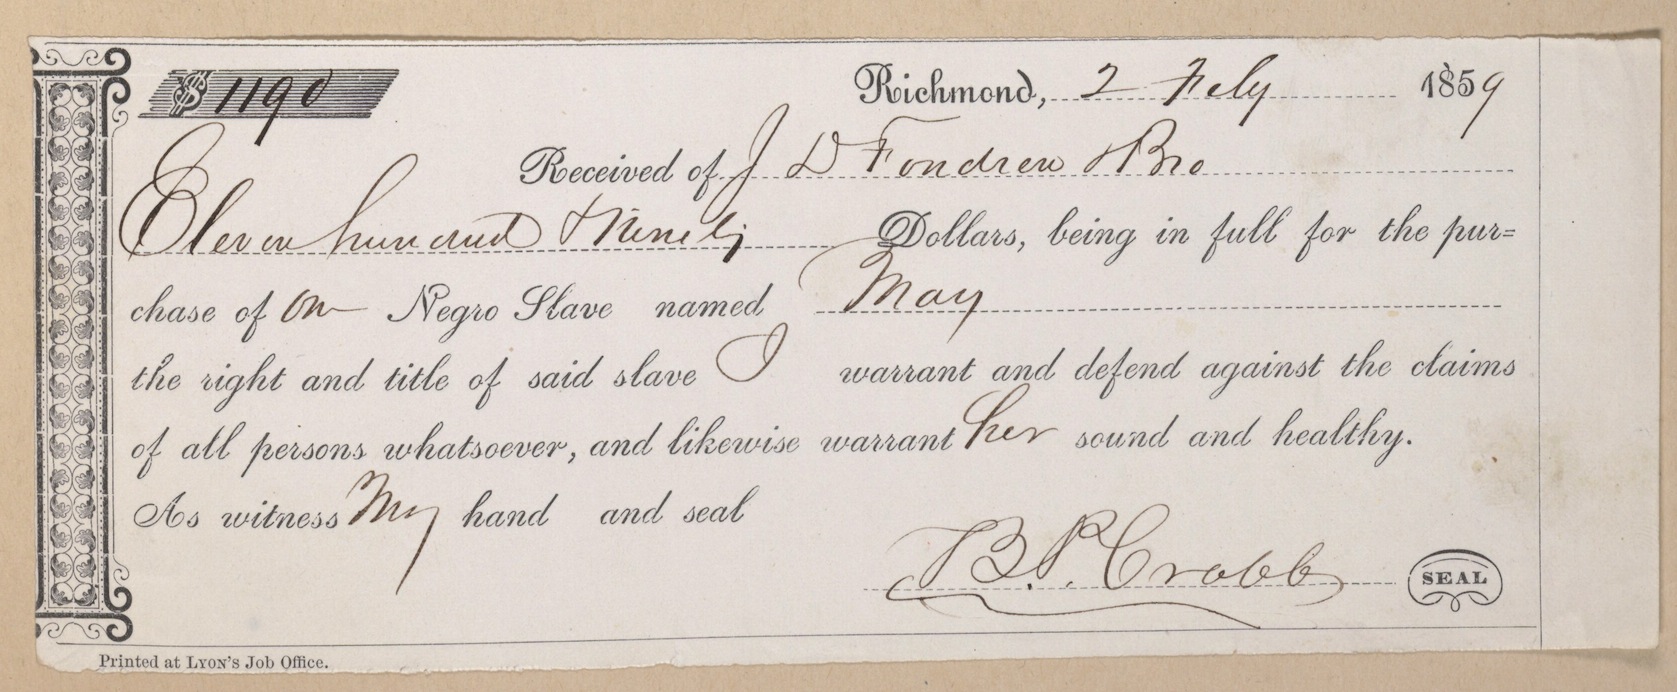 $ 1190
Richmond, 2 Feby 1859
Received of J D Fondren & Bro
Eleven hundred & Ninety Dollars, being in full for the pur=
chase of one Negro Slave named May
the right and title of said slave I warrant and defend against the claims
of all persons whatsoever, and likewise warrant her sound and healthy.
As witness My hand and seal
B. P. Crabb SEAL
Printed at LYON'S Job Office.